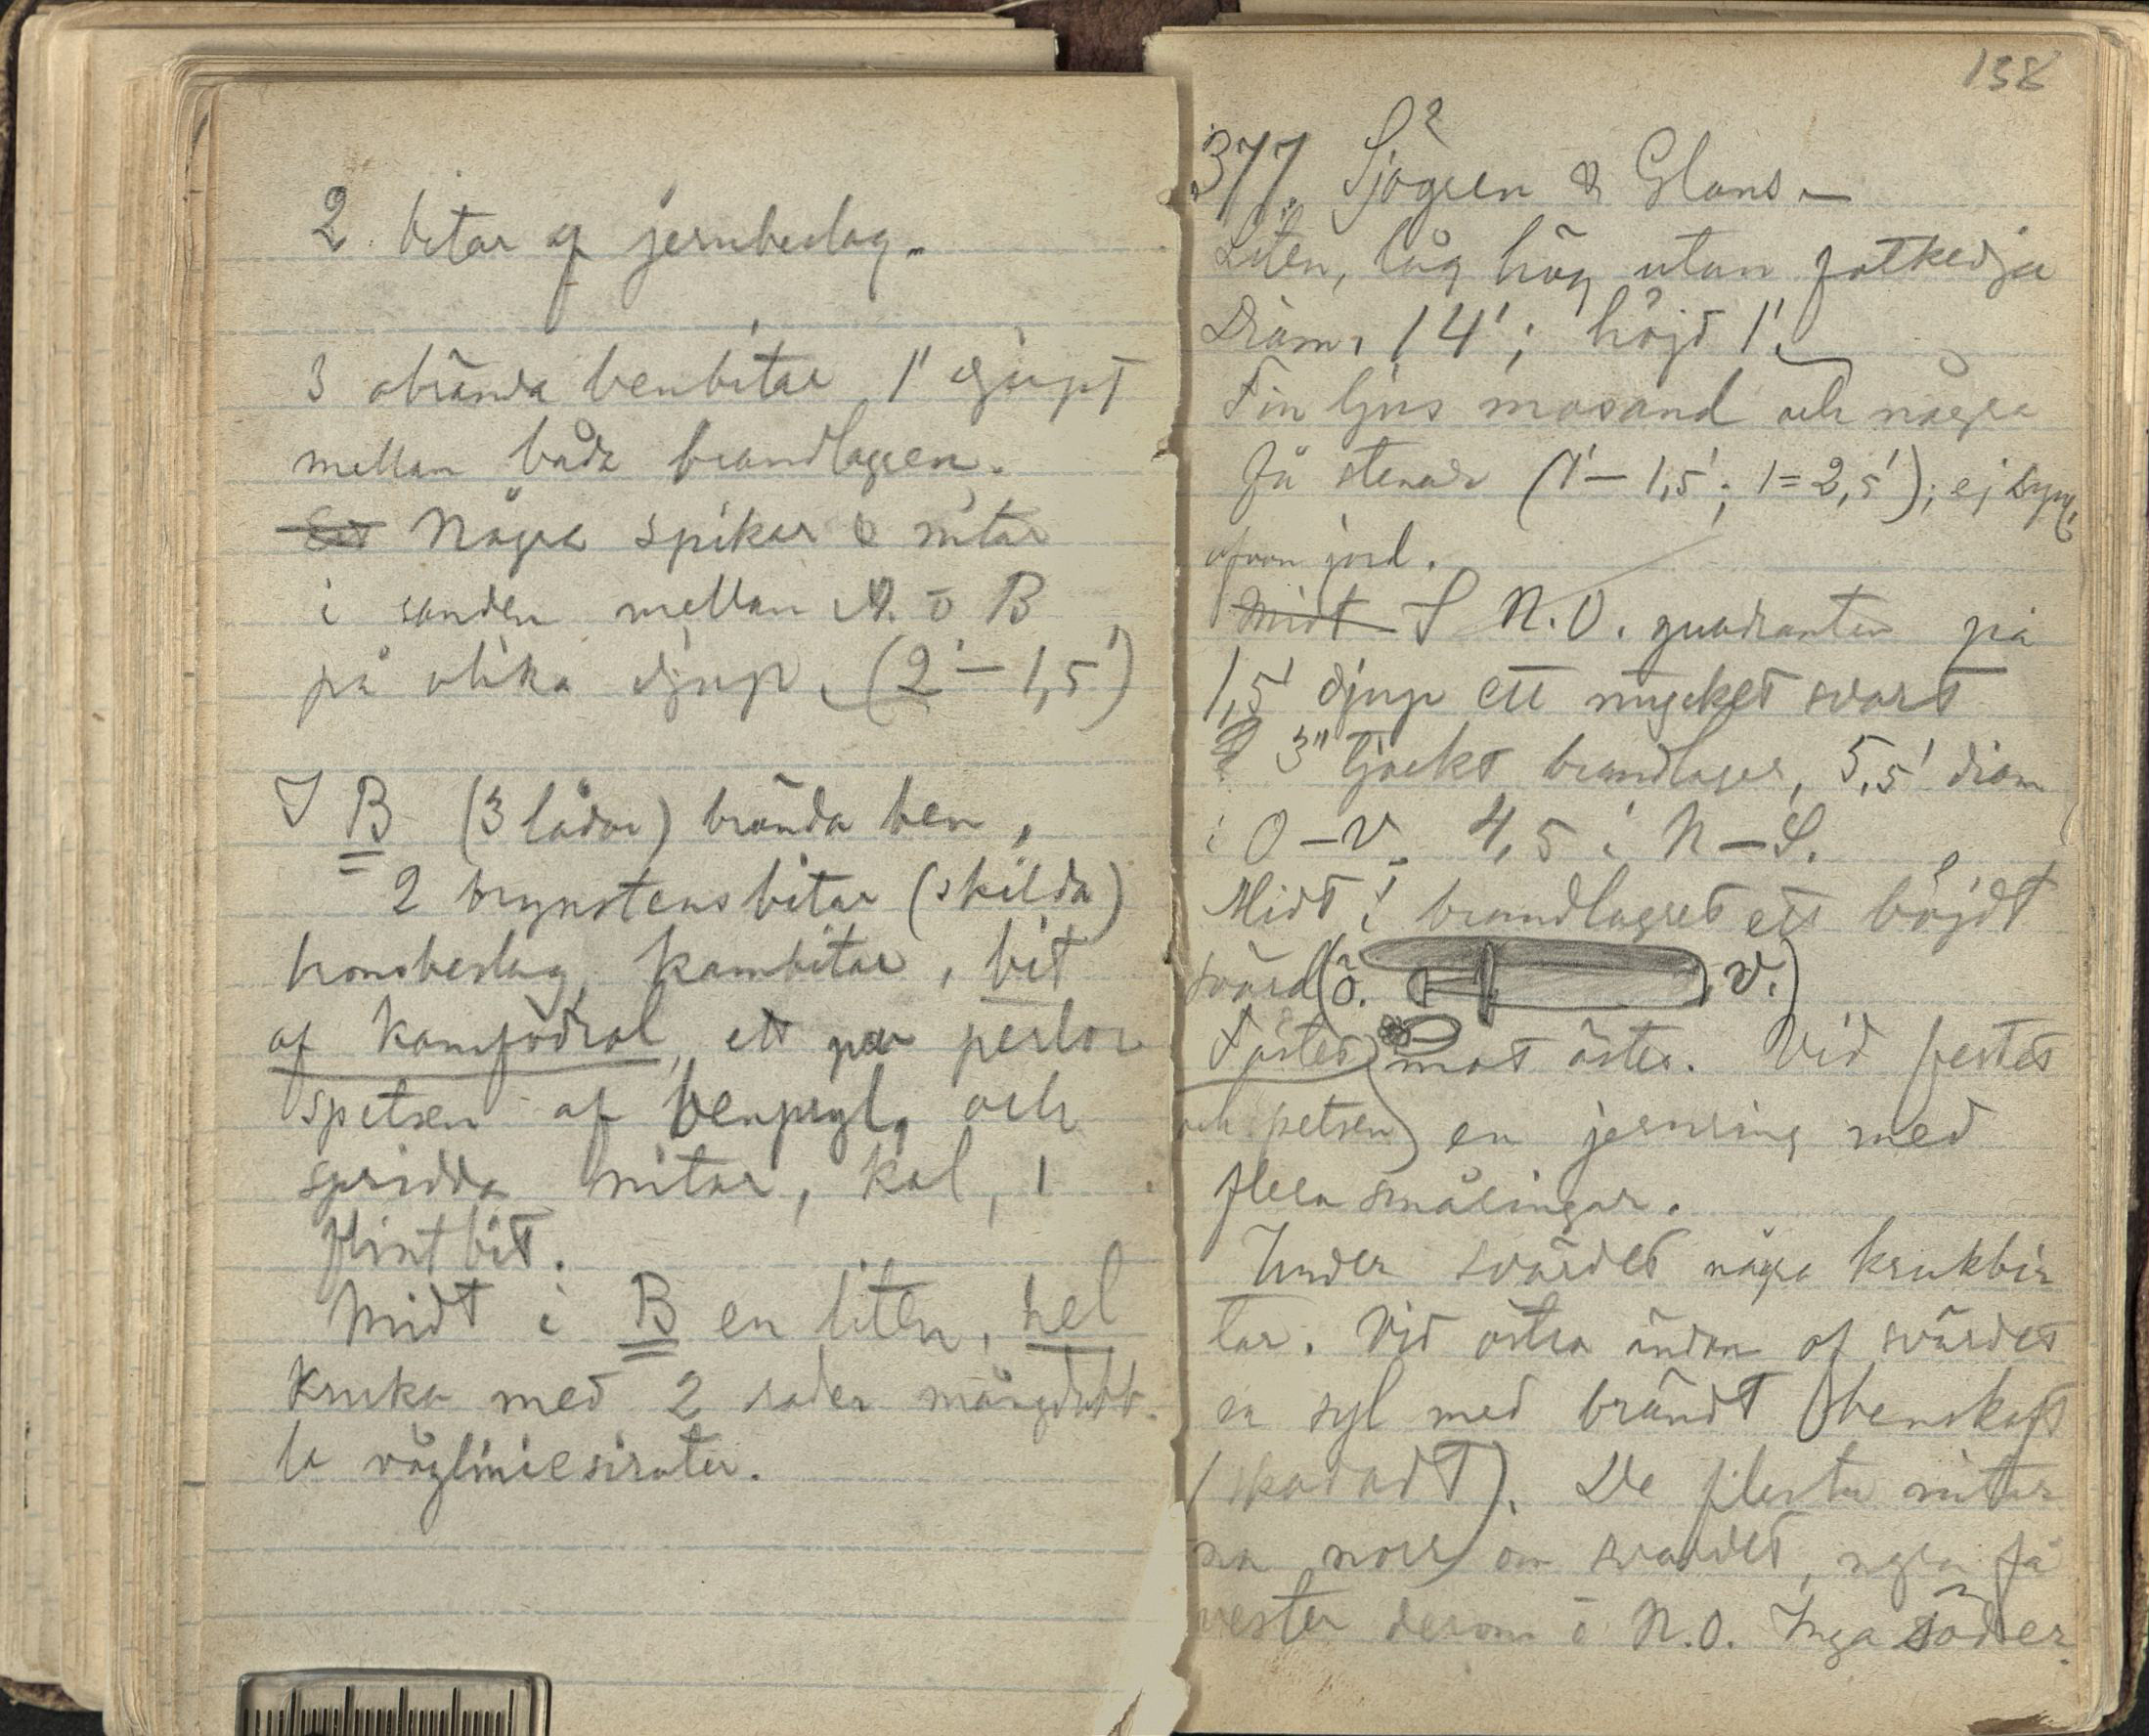 2 bitar af jernbeslag.
3 obrända benbitar 1' djupt
mellan båda brandlagren.
Några spikar & nitar
i sanden mellan A. o B
på olika djup. (2' – 1,5')
I B (3 lådor) brända ben,
2 brynstensbitar (skilda)
bronsbeslag, kambitar, bit
af kamfodral, ett par perlor
spetsen af benpryl, och
spridda nitar, kol, 1
flintbit.
Midt i B en liten, hel
kruka med 2 rader mångdubb-
la vågliniesirater.
138
377. Sjögren & Glans.
Liten, låg hög utan fotkedja
Diam. 14'; höjd 1'.
Fin ljus mosand och några
få stenar (1' – 1,5'; 1 = 2,5'); ej synl.
ofvan jord.
Midt I N.O. quadranten på
1,5' djup ett mycket svart
3" tjockt brandlager, 5,5' diam
i O – V. 4,5 i N – S.
Midt i brandlagret ett böjdt
svärd (ö. , v.)
Fästet mot öster. Vid fästet
och spetsen en jernring med
flera småringar.
Under svärdet några krukbi-
tar. Vid östra ändan af svärdet
en syl med brändt benskaft
(skadadt). De flesta nitar
na norr om svärdet, några få
vester derom i N.O. Inga söder.